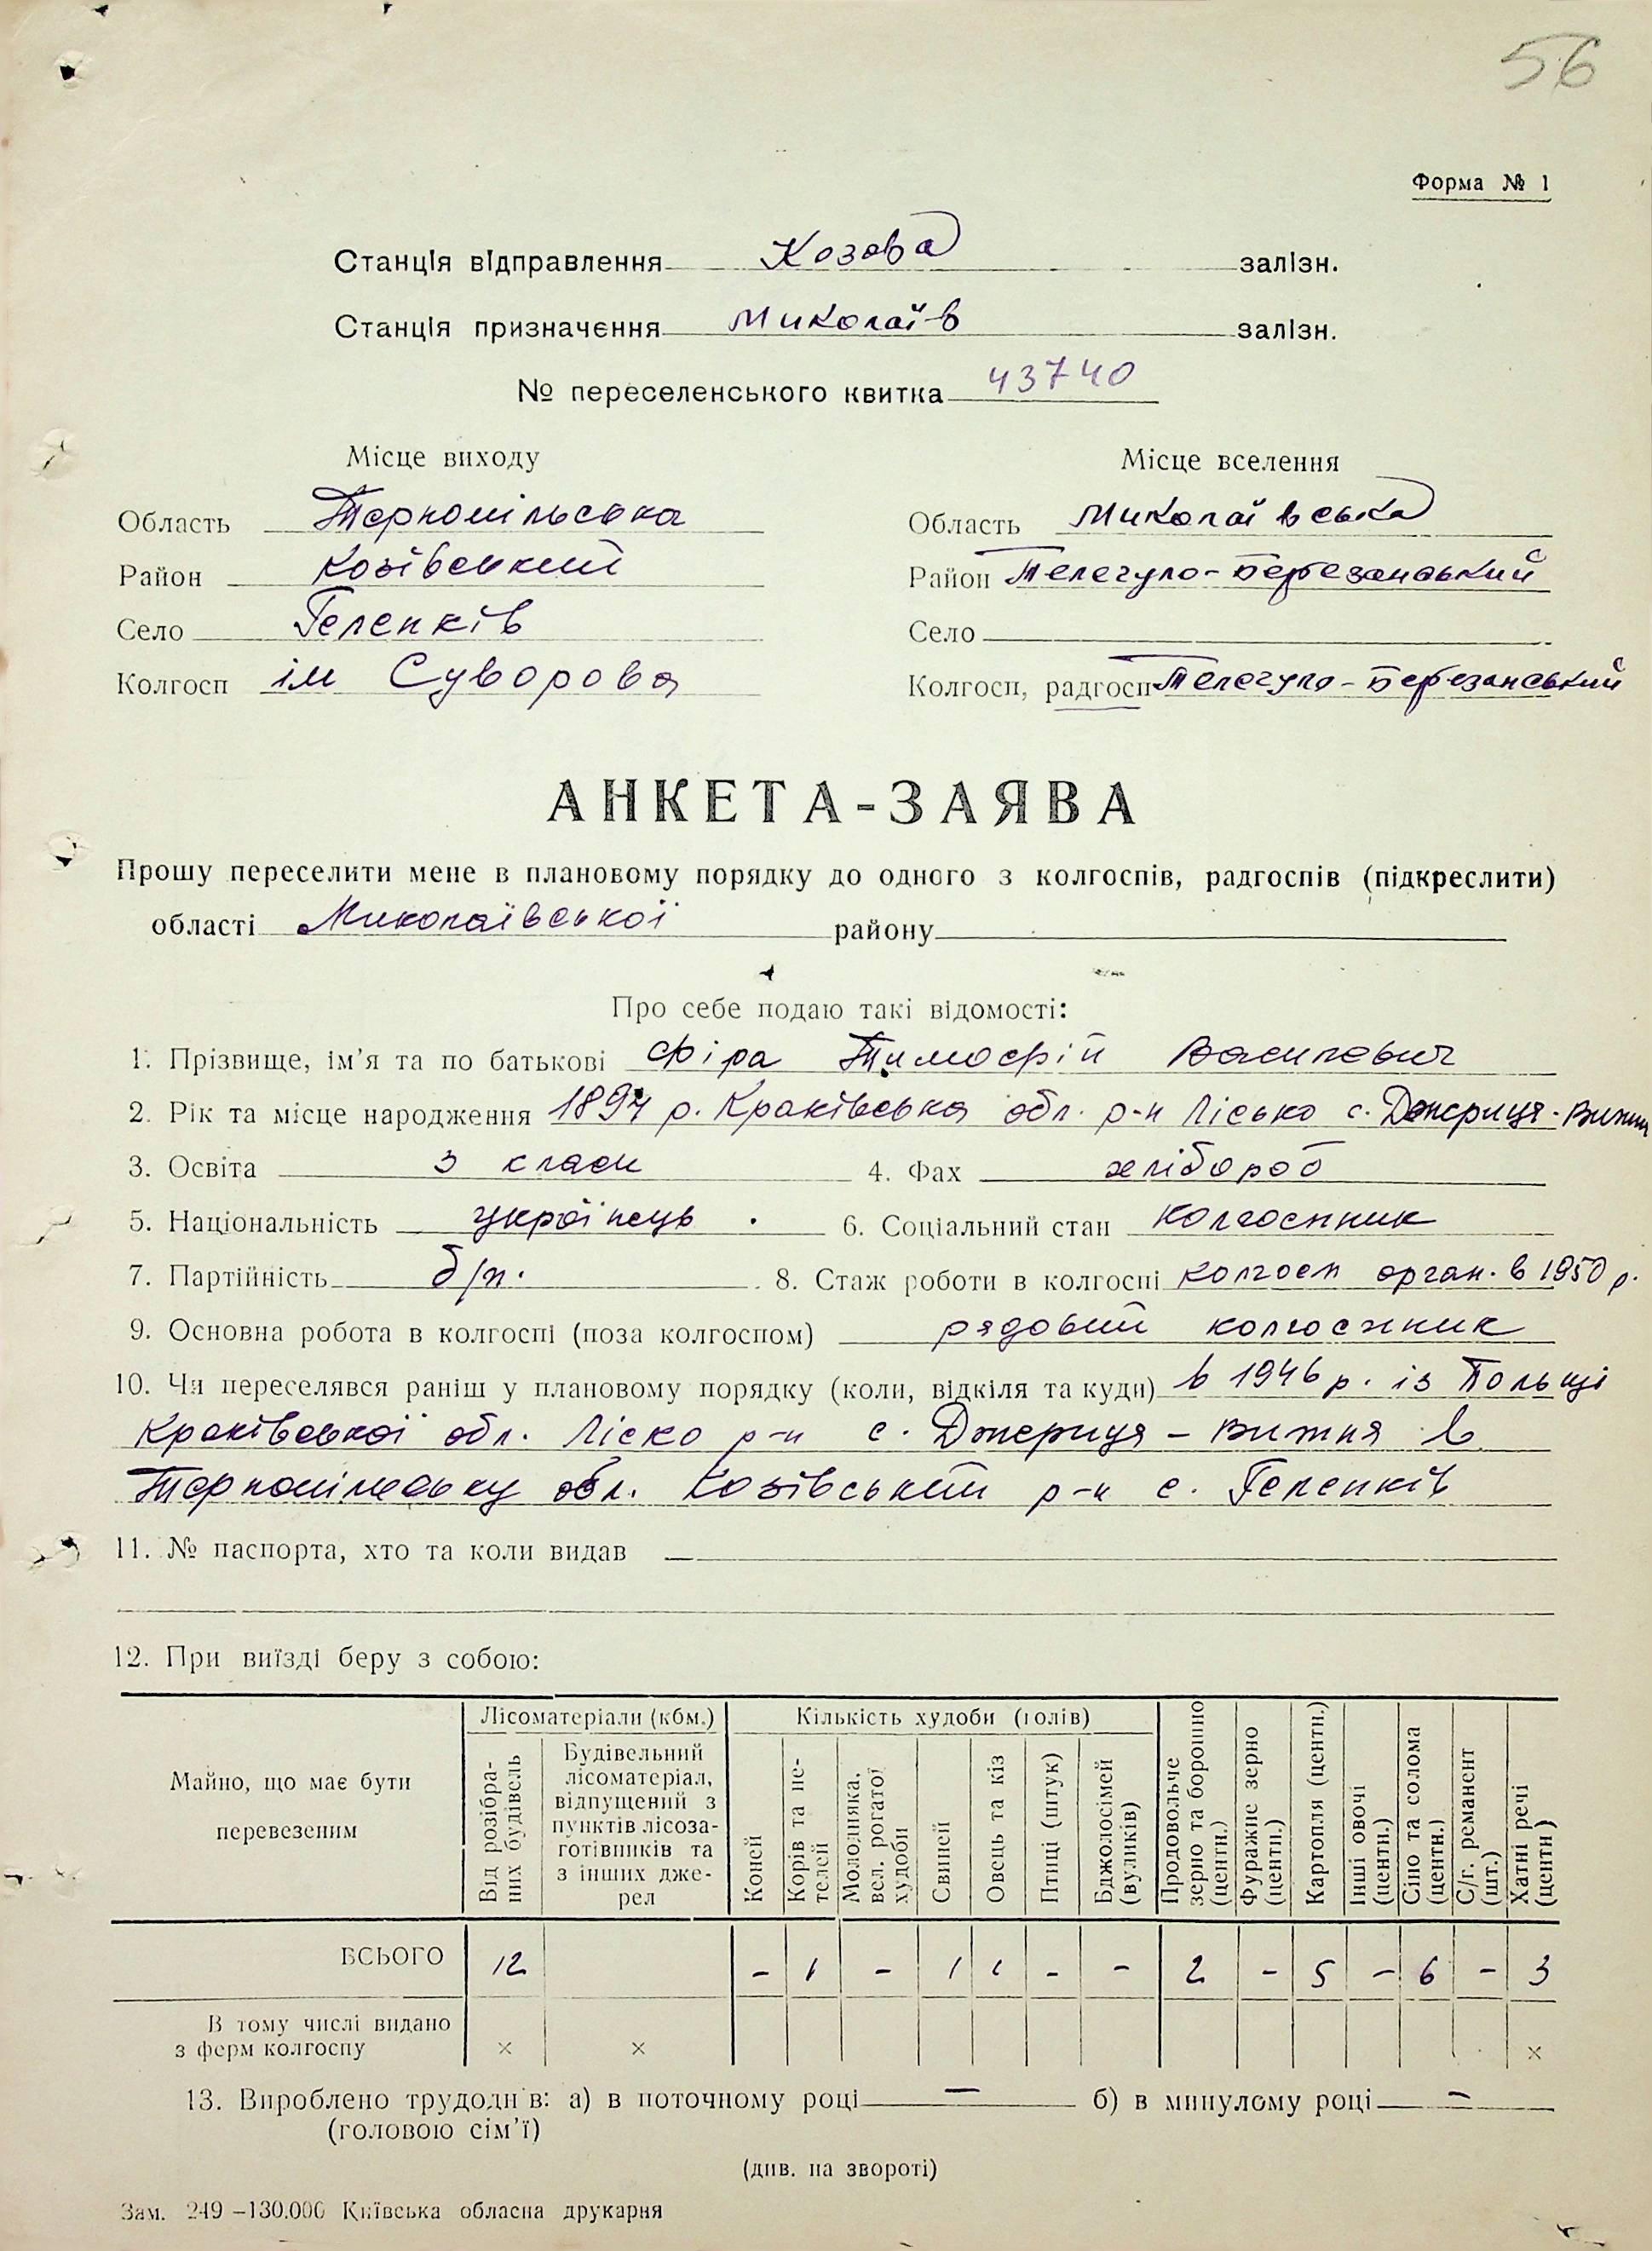 56
Форма № 1
Станція відправлення Козова залізн.
Станція призначення Миколаїв залізн.
№ переселенського квитка 43740
Місце виходу Місце вселення
Область Тернопільська Область Миколаївська
Район Козівський Район Телегуло-Березанський
Село Геленків Село
Колгосп ім Суворова Колгосп, радгосп Телегуло-Березанський
АНКЕТА-ЗАЯВА
Прошу переселити мене в плановому порядку до одного з колгоспів, радгоспів (підкреслити)
області Миколаївської району
Про себе подаю такі відомості:
1. Прізвище, ім'я та по батькові Фіра Тимофій Васильович
2. Рік та місце народження р. Краківська обл. р-н Лісько с. Джериця-
3. Освіта 3 класи 4. Фах хлібороб
5. Національність українець 6. Соціальний стан колгоспник
7. Партійність б/п. 8. Стаж роботи в колгоспі колгосп орган. в 1950 р.
9. Основна робота в колгоспі (поза колгоспом) рядовий колгоспник
10. Чи переселявся раніш у плановому порядку (коли, відкіля та куди) в 1946 р. із Польщі
Краківської обл. Ліско р-н с. Джериця - Вижня в
Тернопільську обл. Козівський р-н с. Геленків
11. № паспорта, хто та коли видав —
12. При виїзді беру з собою:
Майно, що має бути перевезеним
Лісоматеріали (кбм.) Кількість худоби (голів)
Від розібраних будівель
Будівельний лісоматеріал, відпущений з пунктів лісозаготівників та з інших джерел
Коней
Корів та нетелей
Молодняка, вел. рогатої худоби
Свиней
Овець та кіз
Птиці (штук)
Бджолосімей (вуликів)
Продовольче зерно та борошно (центн.)
Фуражне зерно (центн.)
Картопля (центн.)
Інші овочі (центн.)
Сіно та солома (центн.)
С/г. реманент (шт.)
Хатні речі (центн)
ВСЬОГО 12 – 1 – 1 1 – – 2 – 5 – 6 – 3
В тому числі видано
з ферм колгоспу × × ×
13. Вироблено трудоднів: а) в поточному році — б) в минулому році —
(головою сім'ї)
(див. на звороті)
Зам. 249 –130.000 Київська обласна друкарня